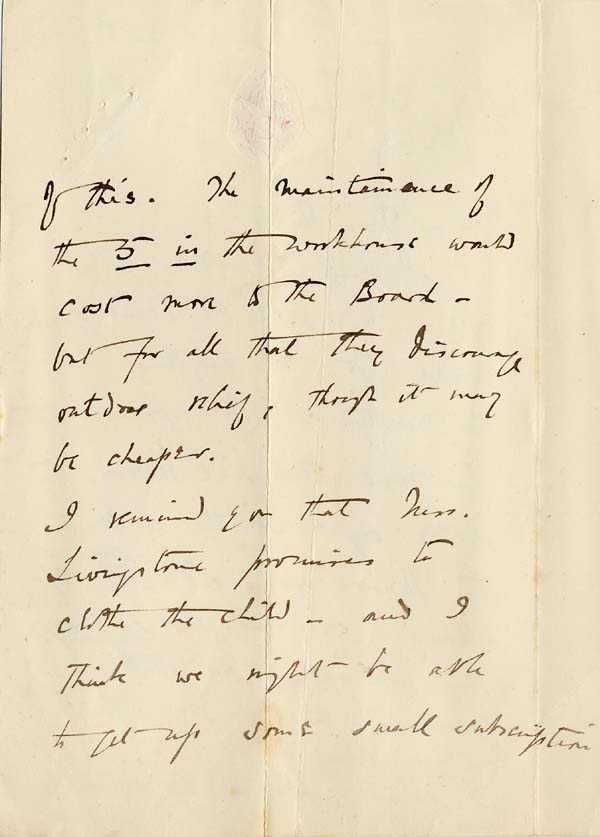 Of this. The maintainence of
the 5 in the workhouse would
cost more to the Board -
but for all that they discourage
outdoor relief, though it may
be cheaper.
I remind you that Miss.
Livingstone promises to
clothe the child - and I
think we might be able
to get up some small subscription